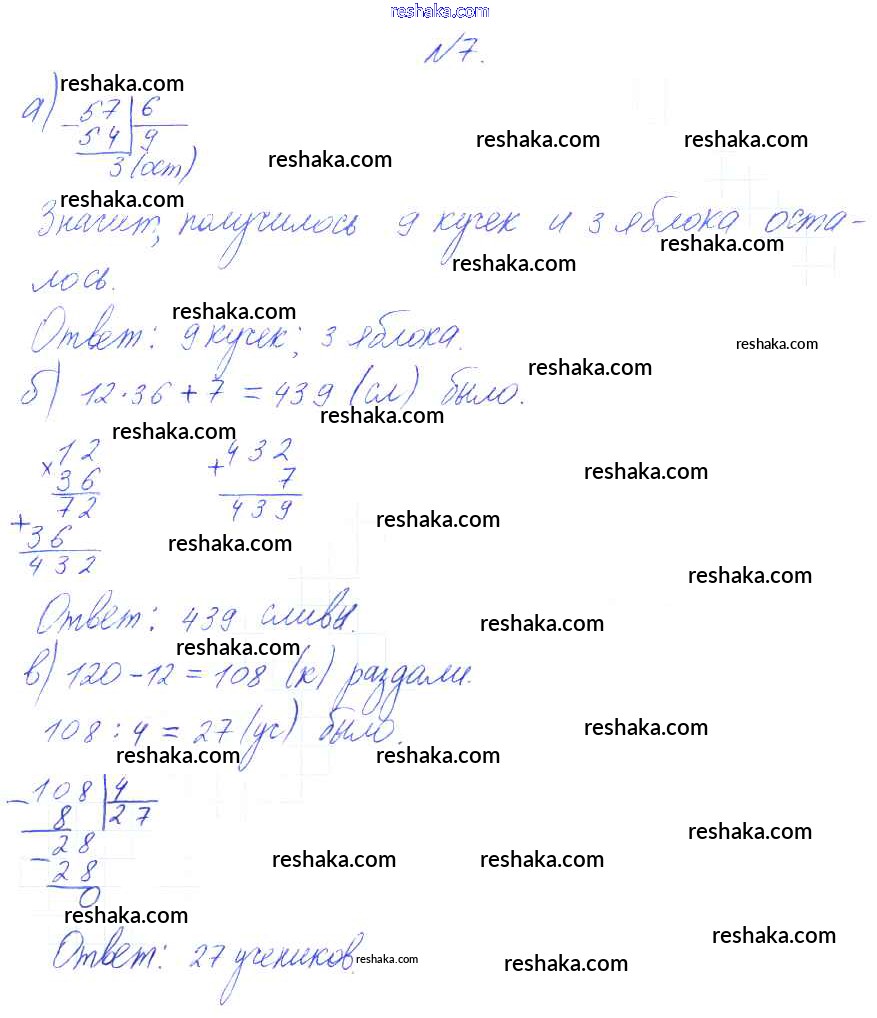 reshaka.com
№7.
reshaka.com
а) 57 6
reshaka.com reshaka.com
54 9
reshaka.com
3 (ост)
reshaka.com
Значит, получилось 9 кучек и 3 яблока оста-
reshaka.com
reshaka.com
лось.
reshaka.com
Ответ: 9 кучек; 3 яблока.
reshaka.com
reshaka.com
б) 12·36+7=439 (сл) было.
reshaka.com
reshaka.com
×12 +432
reshaka.com
36 7
72 439
reshaka.com
+36
reshaka.com
432
reshaka.com
Ответ: 439 слив.
reshaka.com
reshaka.com
в) 120-12=108 (к) раздали.
108:4=27 (уч) было.
reshaka.com
reshaka.com reshaka.com
-108 4
8 27
reshaka.com
-28
reshaka.com reshaka.com
28
0
reshaka.com
reshaka.com
Ответ: 27 учеников.
reshaka.com
reshaka.com